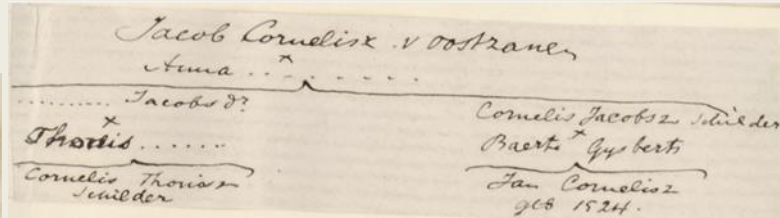 Jacob Cornelisz. v oostzanen
Anna . . x . . . . . .
.......... Jacobs dr.
x
Thonis .......
Cornelis Thonisz
Schilder
Cornelis Jacobsz Schilder
x
Baerte Gysberts
Jan Cornelisz
geb 1524.